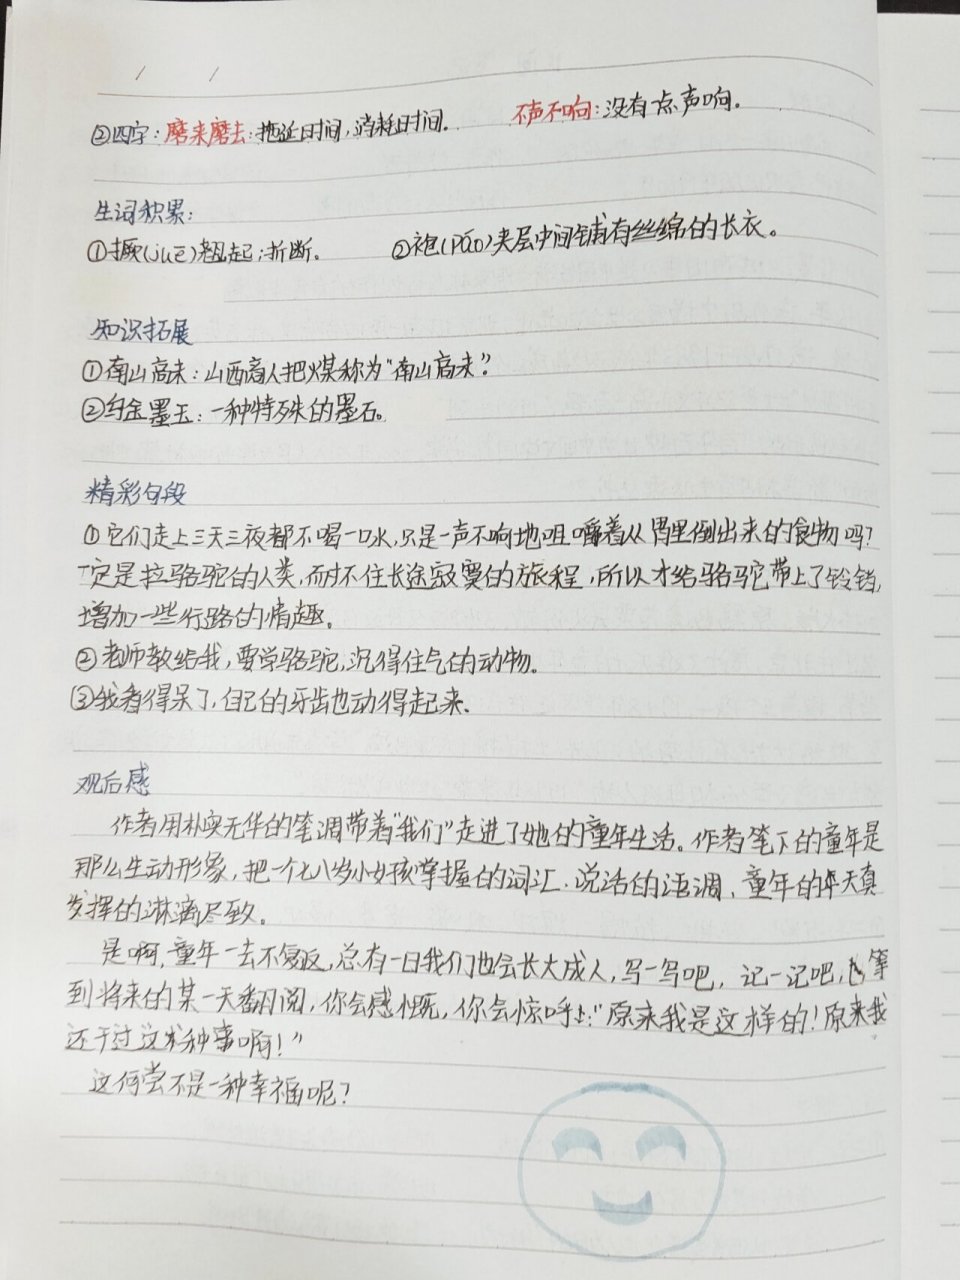 ②四字：磨来磨去：拖延时间，消耗时间。 不声不响：没有点声响。
生词积累：
①撅(juē)翘起；折断。 ②袍(páo)夹层中间铺有丝绵的长衣。
知识拓展
①南山高末：山西商人把煤称为“南山高末”。
②乌金墨玉：一种特殊的墨石。
精彩句段
①它们走上三天三夜都不喝一口水，只是一声不响地咀嚼着从胃里倒出来的食物吗？
一定是拉骆驼的人类，耐不住长途寂寞的旅程，所以才给骆驼带上了铃铛，
增加一些行路的情趣。
②老师教给我，要学骆驼，沉得住气的动物。
③我看得呆了，自己的牙齿也动得起来。
观后感
作者用朴实无华的笔调带着“我们”走进了她的童年生活。作者笔下的童年是
那么生动形象，把一个七八岁小女孩掌握的词汇、说话的语调、童年的天真
发挥的淋漓尽致。
是啊，童年一去不复返，总有一日我们也会长大成人，写一写吧，记一记吧，等
到将来的某一天翻阅，你会感慨，你会惊呼上：“原来我是这样的！原来我
还干过这种事啊！”
这何尝不是一种幸福呢？